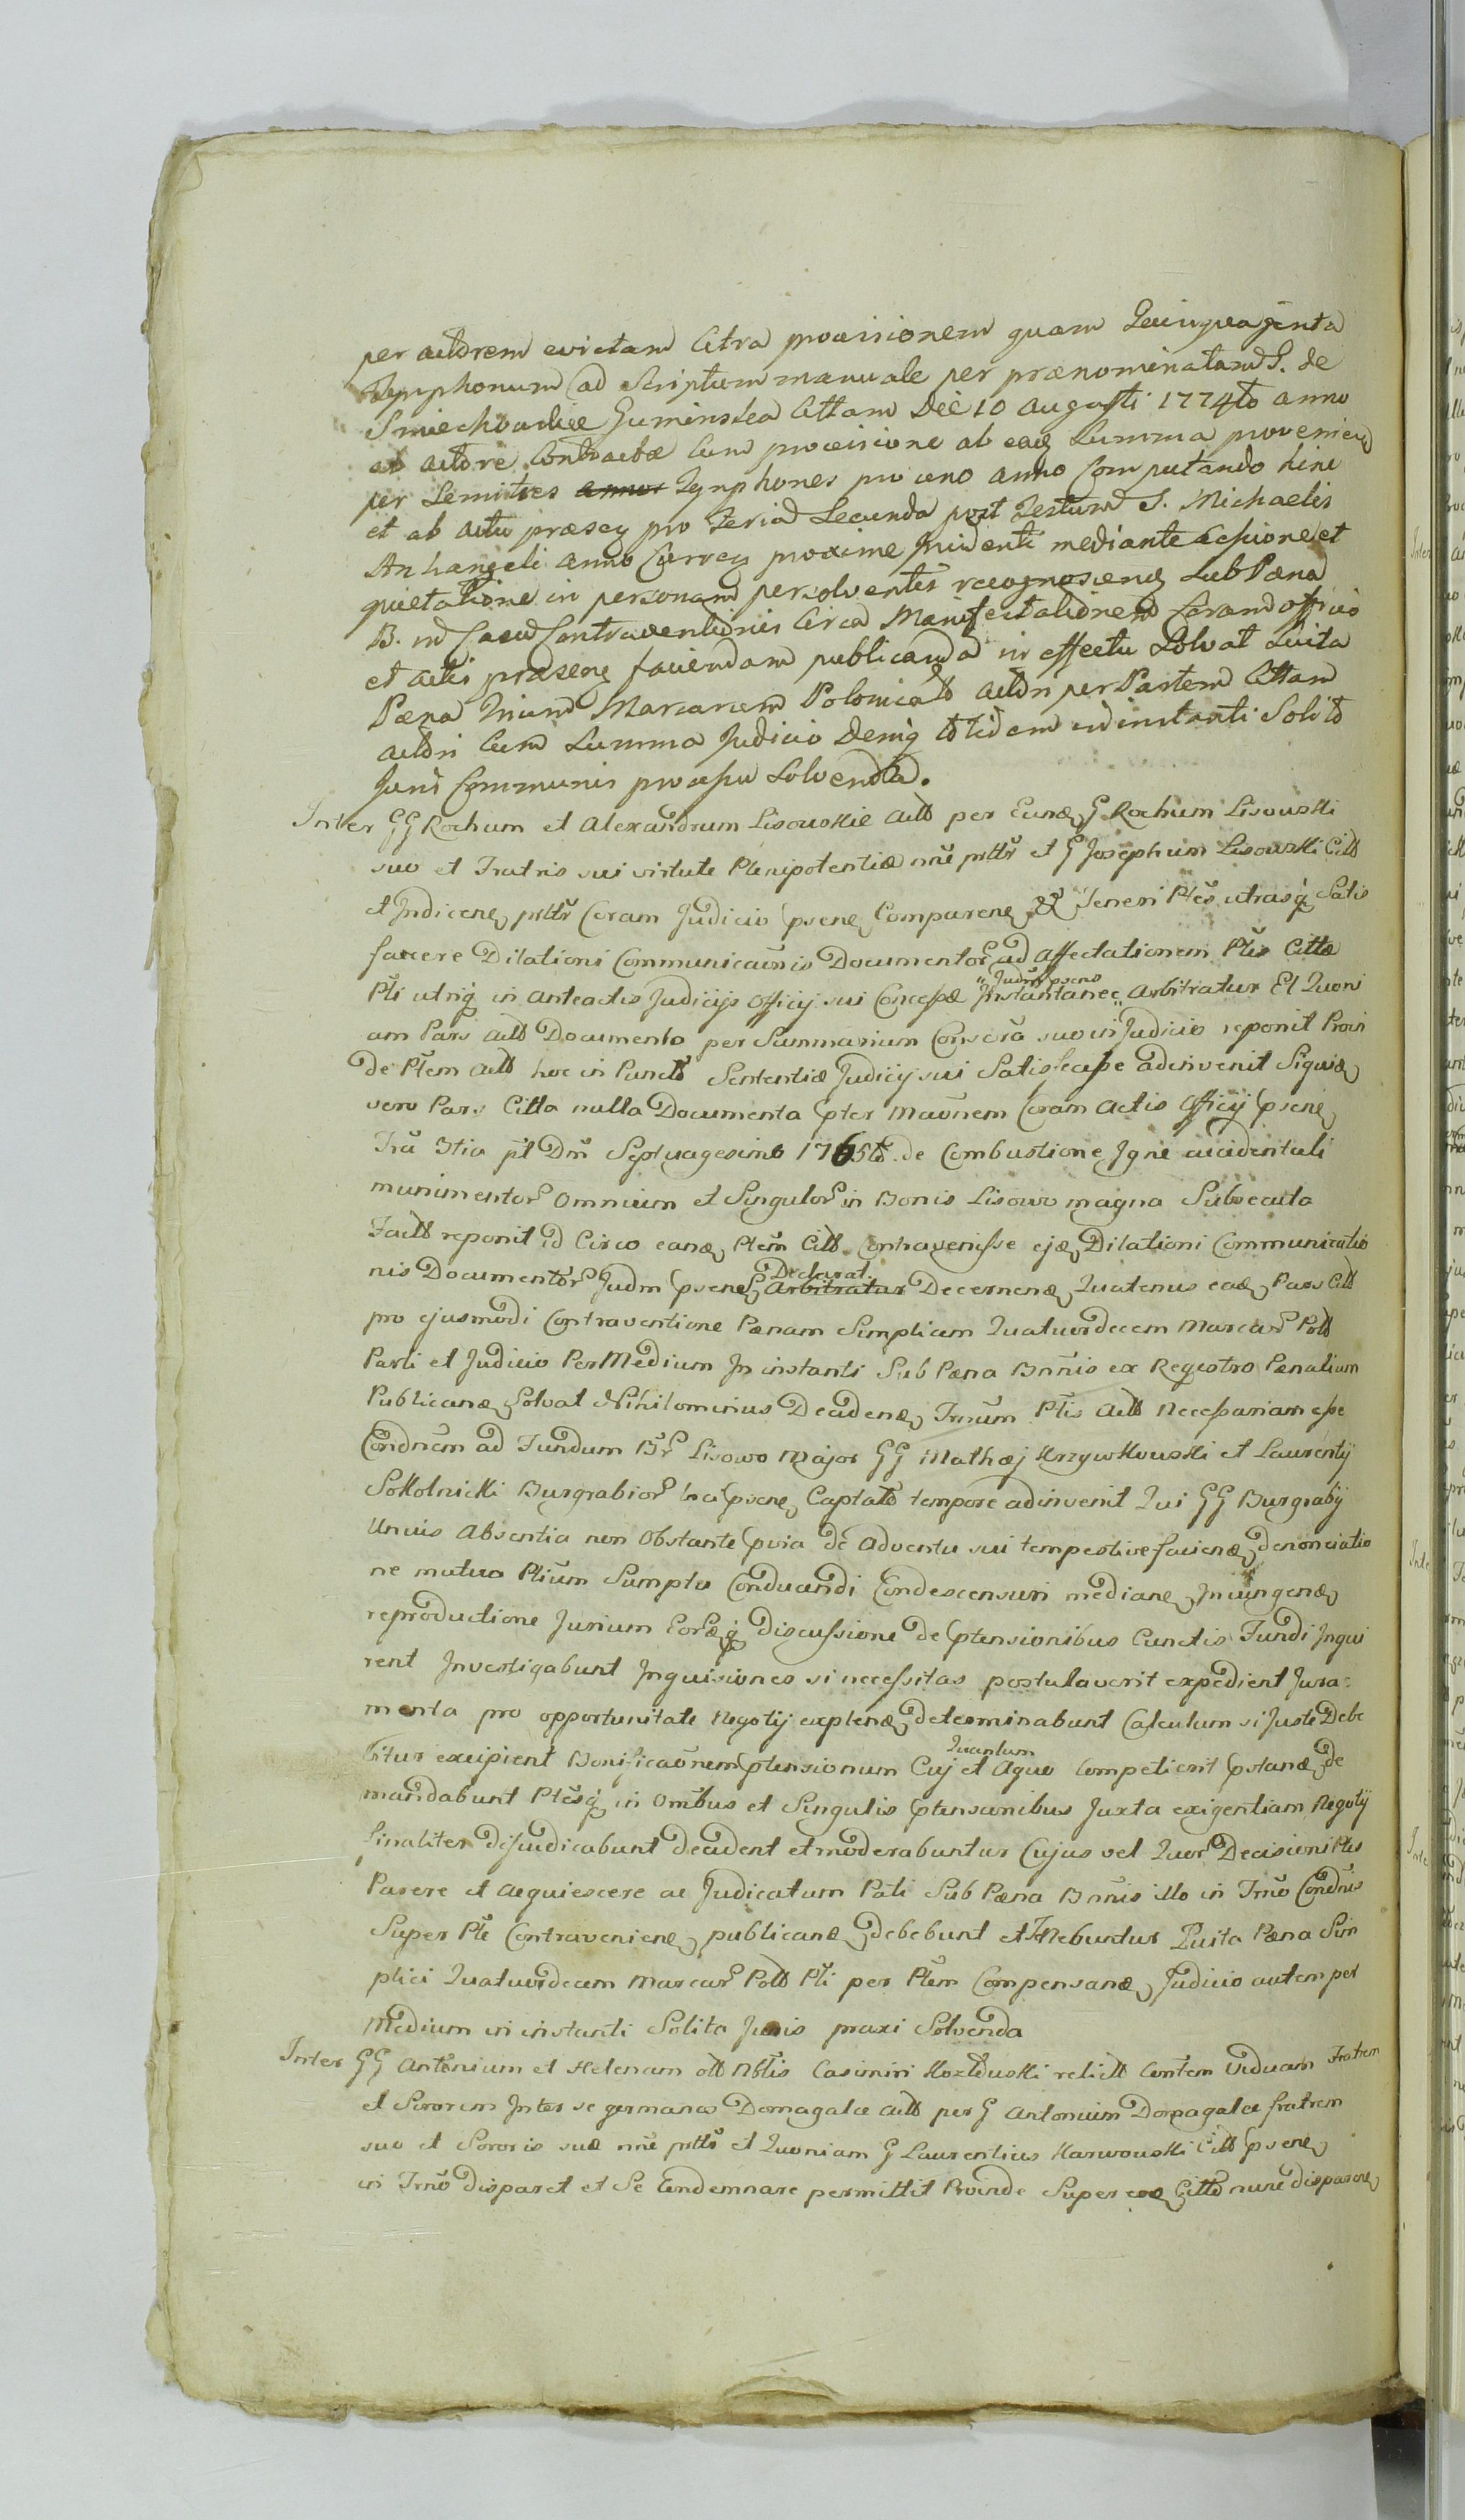 per actorem evictam Citra provisionem quam Quinquaginta
Tymphonum ad Scriptum manuale per prænominatam G. de
Smiechowskie Guminska Cttam Die 10 Augusti 1774to anno
ab actore Contractæ Cum provisione ab eaq Summa provenien
per Semitres annos Tymphones pro uno anno Computando hinc
et ab actu præseq pro Feria Secunda post Festum S. Michaelis
Archangeli anno Curreq proxime Incidenti mediante Cessione et
quietatione in personam persolventis recognoscenq Sub Pæna
B. in Casu Contraventionis Circa Manifestationem Coram officio
et actis præsenq faciendam publicanda in effectu Solvat Luita
Pæna Trium Marcarum Polonical actori per Partem Cttam
actori Cum Summa Judicio Deniq totidem in instanti Solito
Juris Communis processu Solvenda.
Inter GG Rochum et Alexandrum Lisouskie actt per Eunq G Rochum Lisouski
suo et Fratris sui virtute Plenipotentiæ nne prttr et G Josephum Lisouski Citt
et Indicenq prttr Coram Judicio psenq Comparenq Teneri Ptes utrasq Satis
facere Dilationi Communicaonis Documentor ad affectationem Ptis Citte
Pti utriq in anteactis Judicijs officij sui Concessæ Judm psens Instantanee arbitratur Et Quoni
am Pars actt Documenta per Summarium Conscra suo in Judicio reponit Proin
de Ptem actt hoc in Puncto Sententiæ Judicij sui Satisfecisse adinvenit Siquiq
vero Pars Citta nulla Documenta pter Maonem Coram actis officij psenq
Fra 3tia pt Dm Septuagesimo 1765to de Combustione Igne accidentali
munimentor omnium et Singulor in Bonis Lisowo magna Subsecuta
Factt reponit id Circo eanq Ptem Citt Contravenisse ejq Dilationi Communicatio
nis Documentor Judm psenq Declarat Arbitratur Decernenq Quatenus eaq Pars Citt
pro ejusmodi Contraventione Pænam Simplicem Quatuordecem Marcar Poltt
Parti et Judicio Per Medium In instanti Sub Pæna Bnnis ex Regestro Pænalium
Publicanq Solvat Nihilominus Decidenq Trnum Ptis actt Necessariam esse
Condnem ad Fundum Br Lisowo Major GG Mathæj Krzywkouski et Laurentij
Sokolnicki Burgrabior Loci psenq Captato tempore adinvenit Qui GG Burgrabij
Unius Absentia non Obstante pvia de Adventu sui tempestive facienq denonciatio
ne mutuo Ptium Sumptu Conducendi Condescensuri medianq Incungenq
reproductione Jurium Eorq discussione de ptensionibus Cunctis Fundi Inqui
rent Investigabunt Inquisiones si necessitas postulaverit expedient Jura-
menta pro opportunitate Negotij explenq determinabunt Calculum si Juste Debe
bitur excipient Bonificaonem ptensionum Cuj et Aquo Quantum Competierit pstanq de
mandabunt Ptesq in omibus et Singulis ptensionibus Juxta exigentiam Negotij
finaliter dijudicabunt decident et moderabuntur Cujus vel Quor Decisioni Ptes
Parere et acquiescere ac Judicatum Pati Sub Pæna Bnnis illo in Trno Condnis
Super Pte Contravenienq publicanq debebunt et Tenebuntur Luita Pæna Sim
plici Quatuordecem Marcar Poltt Pti per Ptem Compensanq Judicio autem per
Medium in instanti Solita Juris praxi Solvenda
Inter GG Antonium et Helenam ott Nbtis Casimiri Kozlouski relictt Contem Viduam Fratrem
et Sororem Inter se germanos Domagalæ actt per G Antonium Domagalæ fratrem
suo et Sororis suæ nne prttr et Quoniam G Laurentius Karwouski Citt psenq
in Trno disparet et Se Condemnare permittit Proinde Super eoq Citto nunc disparenq